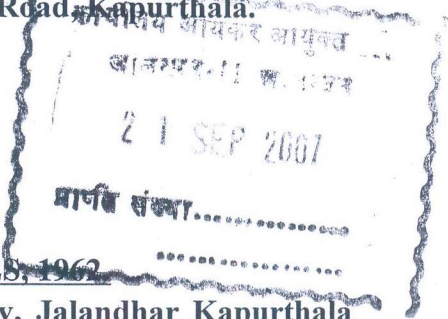 Road, Kapurthala.
कार्यालय आयकर आयुक्त
21 SEP 2007
प्राप्ति संख्या....................
....................
S, 1962
y, Jalandhar Kapurthala